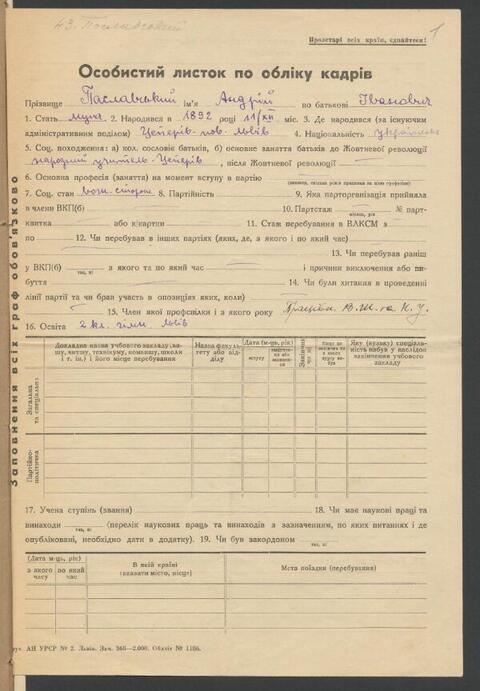 43. Пославський
1
Пролетарі всіх країн, єднайтеся!
Особистий листок по обліку кадрів
Прізвище Паславський ім'я Андрій по батькові Іванович
1. Стать муж. 2. Народився в 1892 році 11/XII міс. 3. Де народився (за існуючим
адміністративним поділом) Цеперів пов. Львів 4. Національність українець
5. Соц. походження: а) кол. сословіє батьків, б) основне заняття батьків до Жовтневої революції
народний учитель. Цеперів, після Жовтневої революції
6. Основна професія (заняття) на момент вступу в партію
7. Соц. стан возн. сторож 8. Партійність 9. Яка парторганізація прийняла
в члени ВКП(б) 10. Партстаж № парт-
місяць, рік
квитка або к/картки 11. Стаж перебування в ВЛКСМ з
по 12. Чи перебував в інших партіях (яких, де, з якого і по який час)
13. Чи перебував раніш
у ВКП(б) з якого та по який час і причини виключення або ви-
так, ні
буття 14. Чи були хитання в проведенні
лінії партії та чи брав участь в опозиціях яких, коли)
15. Член якої профспілки і з якого року В. Ш. та Н. У.
16. Освіта 2 кл. гімн. Львів
Заповнення всіх граф обов'язково
Докладна назва учбового закладу (ву-
зу, втузу, технікуму, комвишу, школи
і т. ін.) і його місце перебування
Назва факуль-
тету або від-
ділу
(Дата м-ць, рік)
вступу
Закінчив
чи ні
Яку (вузьку) спеціаль-
ність набув у наслідок
закінчення учбового
закладу
Загальна
та спеціальна
Партійно-
політична
17. Учена ступінь (звання) 18. Чи має наукові праці та
винаходи (перелік наукових праць та винаходів з зазначенням, по яких питаннях і де
так, ні
опубліковані, необхідно дати в додатку). 19. Чи був закордоном
так, ні
(Дата м-ць, рік)
з якого
часу
по який
час
В якій країні
(вказати місто, місце)
Мета поїздки (перебування)
АН УРСР № 2. Львів. Зам. 368—2.000. Обліт № 1186.